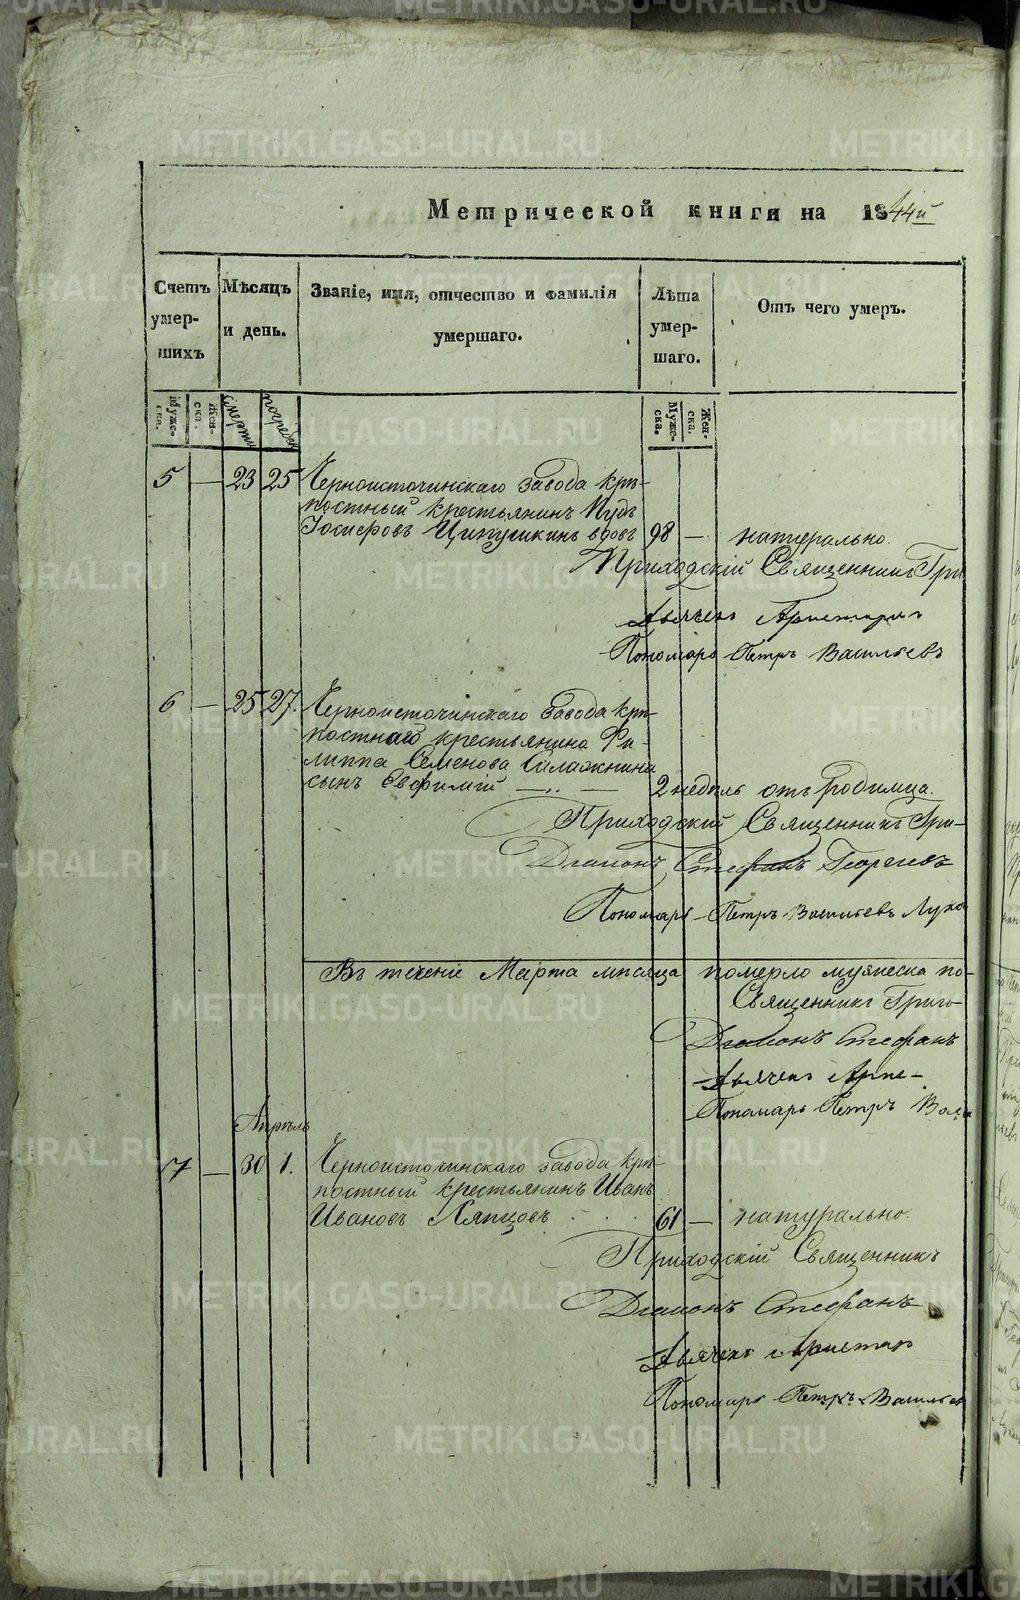 Метрической книги на 1844й
Счетъ умер- шихъ
Мѣсяцъ и день.
Званіе, имя, отчество и фамилія умершаго.
Лѣта умер- шаго.
Отъ чего умеръ.
Муже- ска.
Жен- ска.
смерти
погребен
Муже- ска.
Жен- ска.
5 — 23 25 Черноисточинскаго завода крѣ-
постный крестьянинъ Іудъ
Іосифовъ Ципушкинъ вдовъ 98 — натурально.
Приходскій Священникъ Гри
Дьячекъ Аристархъ
Пономарь Петръ Васильевъ
6 — 25 27. Черноисточинскаго завода крѣ-
постнаго крестьянина Фи-
липпа Семенова Салажнина
сынъ Евфимій — 2 недѣль отъ родимца.
Приходскій Священникъ Гри-
Діаконъ Стефанъ Георгіевъ
Пономарь Петръ Васильевъ
Въ теченіе Марта мѣсяца померло мужеска по-
Священникъ Григо-
Діаконъ Стефанъ
Дьячекъ Арис-
Пономарь Петръ Васи
Апрѣль
7 — 30 1. Черноисточинскаго завода крѣ-
постный крестьянинъ Иванъ
Ивановъ Ляпцовъ 61 — натурально.
Приходскій Священникъ
Діаконъ Стефанъ
Дьячекъ Аристар
Пономарь Петръ Васильев
METRIKI.GASO-URAL.RU